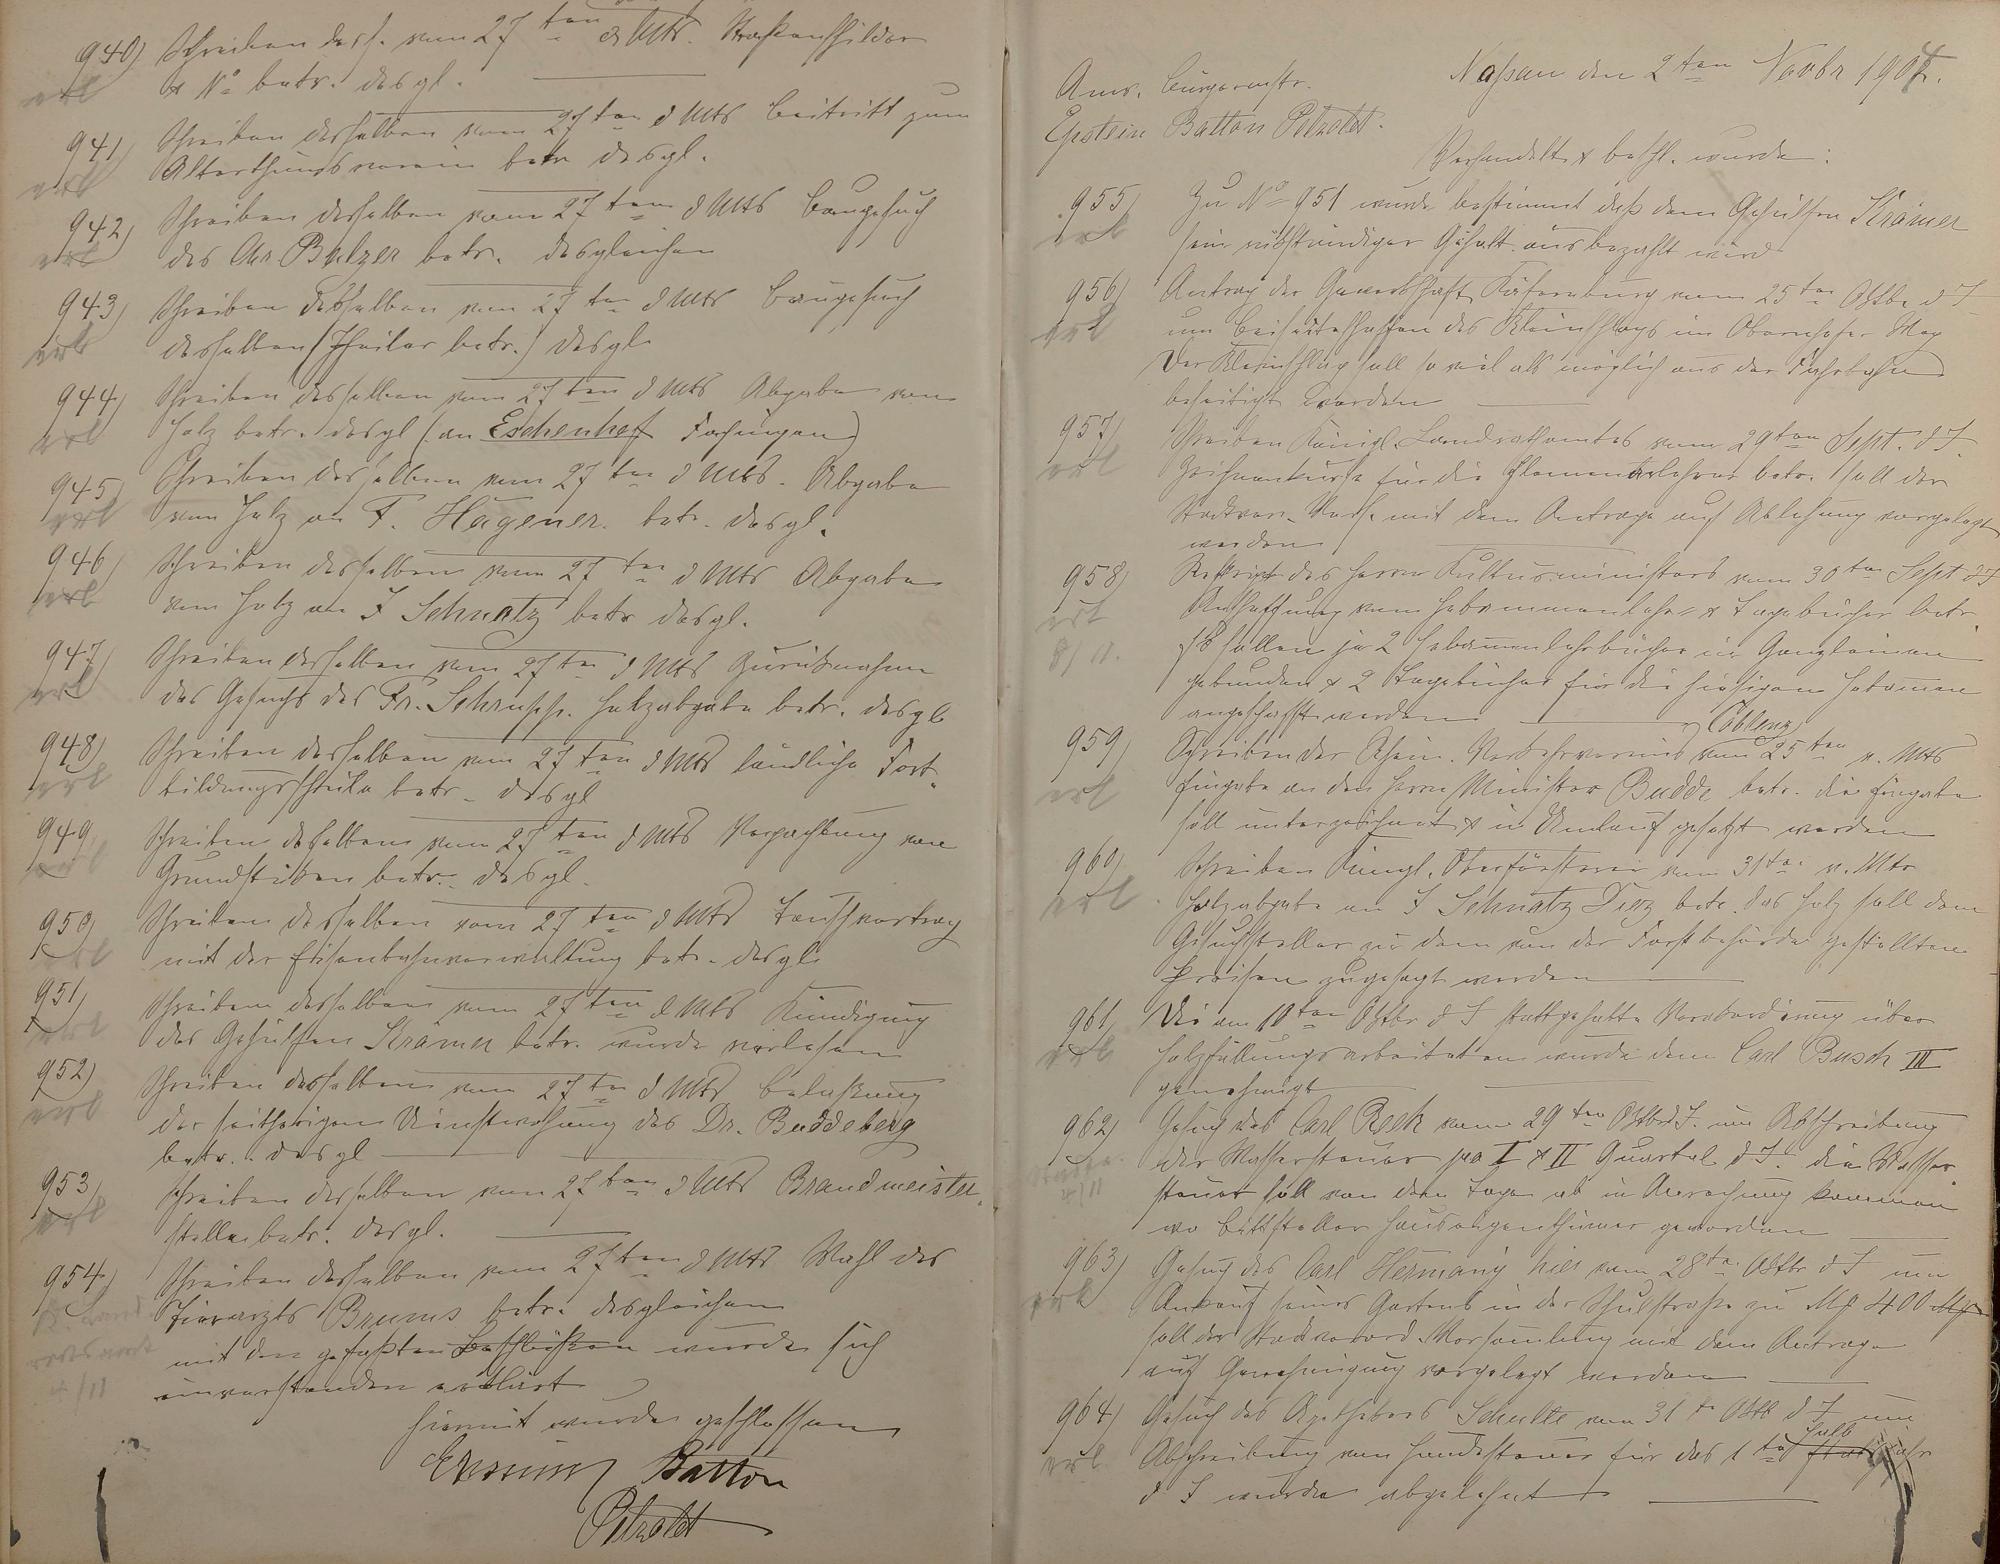 940) Schreiben dess. vom 27ten d Mts. Straßenschilder
erl
& No betr. desgl.
941) Schreiben desselben vom 27ten d Mts Beitritt zum
erl
Alterthumsverein betr desgl.
942) Schreiben desselben vom 27ten d Mts Baugesuch
erl
des Chr Balzer betr. desgleichen
943) Schreiben desselben vom 27ten d Mts Baugesuch
erl
desselben (Pfeiler betr.) desgl
944) Schreiben desselben vom 27ten d Mts Abgabe von
erl
Holz betr. desgl (an Eschenhof Fachingen)
945) Schreiben desselben vom 27ten d Mts. Abgabe
erl
von Holz an F. Hagener. betr. desgl.
946) Schreiben desselben vom 27ten d Mts Abgabe
erl
von Holz an J Schnatz betr desgl.
947) Schreiben desselben vom 27ten d Mts Zurücknahme
erl
des Gesuchs des Fr. Schrupp. Holzabgabe betr. desgl
948) Schreiben desselben vom 27ten d Mts ländliche Fort-
erl
bildungsschule betr. desgl
949) Schreiben desselben vom 27ten d Mts Verpachtung von
erl
Grundstücken betr. desgl.
950) Schreiben desselben vom 27ten d Mts Tauschvertrag
erl
mit der Eisenbahnverwaltung betr. desgl
951) Schreiben desselben vom 27ten d Mts Kündigung
erl
des Gehülfen Krämer betr. wurde verlesen
952) Schreiben desselben vom 27ten d Mts Belaßung
erl
der seitherigen Dienstwohnung des Dr. Buddeberg
betr. desgl
953) Schreiben desselben vom 27ten d Mts Brandmeister-
erl
stelle betr. desgl.
954) Schreiben desselben vom 27ten d Mts Wahl des
Tierarzts Bruns betr. desgleichen
mit den gefaßten Beschlüßen wurde sich
4/11
einverstanden erklärt
Hiermit wurde geschlossen
Batton
Petzoldt
Naßau den 2ten Novbr 1904.
Anw. Bürgermstr.
Epstein Batton Petzoldt.
Verhandelt & beschl. wurde:
955) Zu No 951 wurde bestimmt daß dem Gehülfen Krämer
erl
sein rückständiger Gehalt ausbezahlt wird
956) Antrag der Gewerkschaft Käfernburg vom 25ten Oktbr d J
erl
um Beiseiteschaffen des Kleinschlags im Obernhofer Weg
Der Kleinschlag soll so viel als möglich aus der Fahrbahn
beseitigt werden
957) Schreiben Königl. Landrathsamtes vom 29ten Sept. d J.
erl
Zeichenkurse für die Elementarlehrer betr. soll der
Stadtver. Vers. mit dem Antrage auf Ablehnung vorgelegt
werden
958) Reskript des Herrn Kultusministers vom 30ten Sept d J
erl
Anschaffung von Hebammenlehr- & Tagebücher betr.
8/11.
Es sollen je 2 Hebammenlehrbücher in Ganzleinen
gebunden & 2 Tagebücher für die hiesigen Hebammen
angeschafft werden
Coblenz
959) Schreiben des Rhein. Verkehrsvereins vom 25ten v. Mts
erl
Eingabe an den Herrn Minister Budde betr. die Eingabe
soll unterzeichnet & in Umlauf gesetzt werden
960) Schreiben Königl. Oberförsterei vom 31ten v. Mts
erl.
Holzabgabe an J Schnatz Diez betr. das Holz soll dem
Gesuchsteller zu dem von der Forstbehörde gestellten
Preisen zugesagt werden
961) Die am 10ten Oktbr d J stattgehabte Verakkordirung über
erl
Holzfällungsarbeiten wurde dem Carl Busch III
genehmigt
962) Gesuch des Carl Reck vom 29ten Oktbr d J. um Abschreibung
der Wassersteuer pro I & II Quartal d J. die Wasser-
4/11
steuer soll von dem Tage ab in Anrechnung kommen
wo Bittsteller Hauseigenthümer geworden
963) Gesuch des Carl Hermany hier vom 28ten Oktbr d J um
erl
Ankauf seines Gartens in der Schulstraße zu Mk 400 Mk
soll der Stadtverord. Versammlung mit dem Antrage
auf Genehmigung vorgelegt werden
964) Gesuch des Apothekers Schulte vom 31ten Oktb d J um
erl.
Abschreibung von Hundesteuer für das 1te Halbjahr
d J wurde abgelehnt